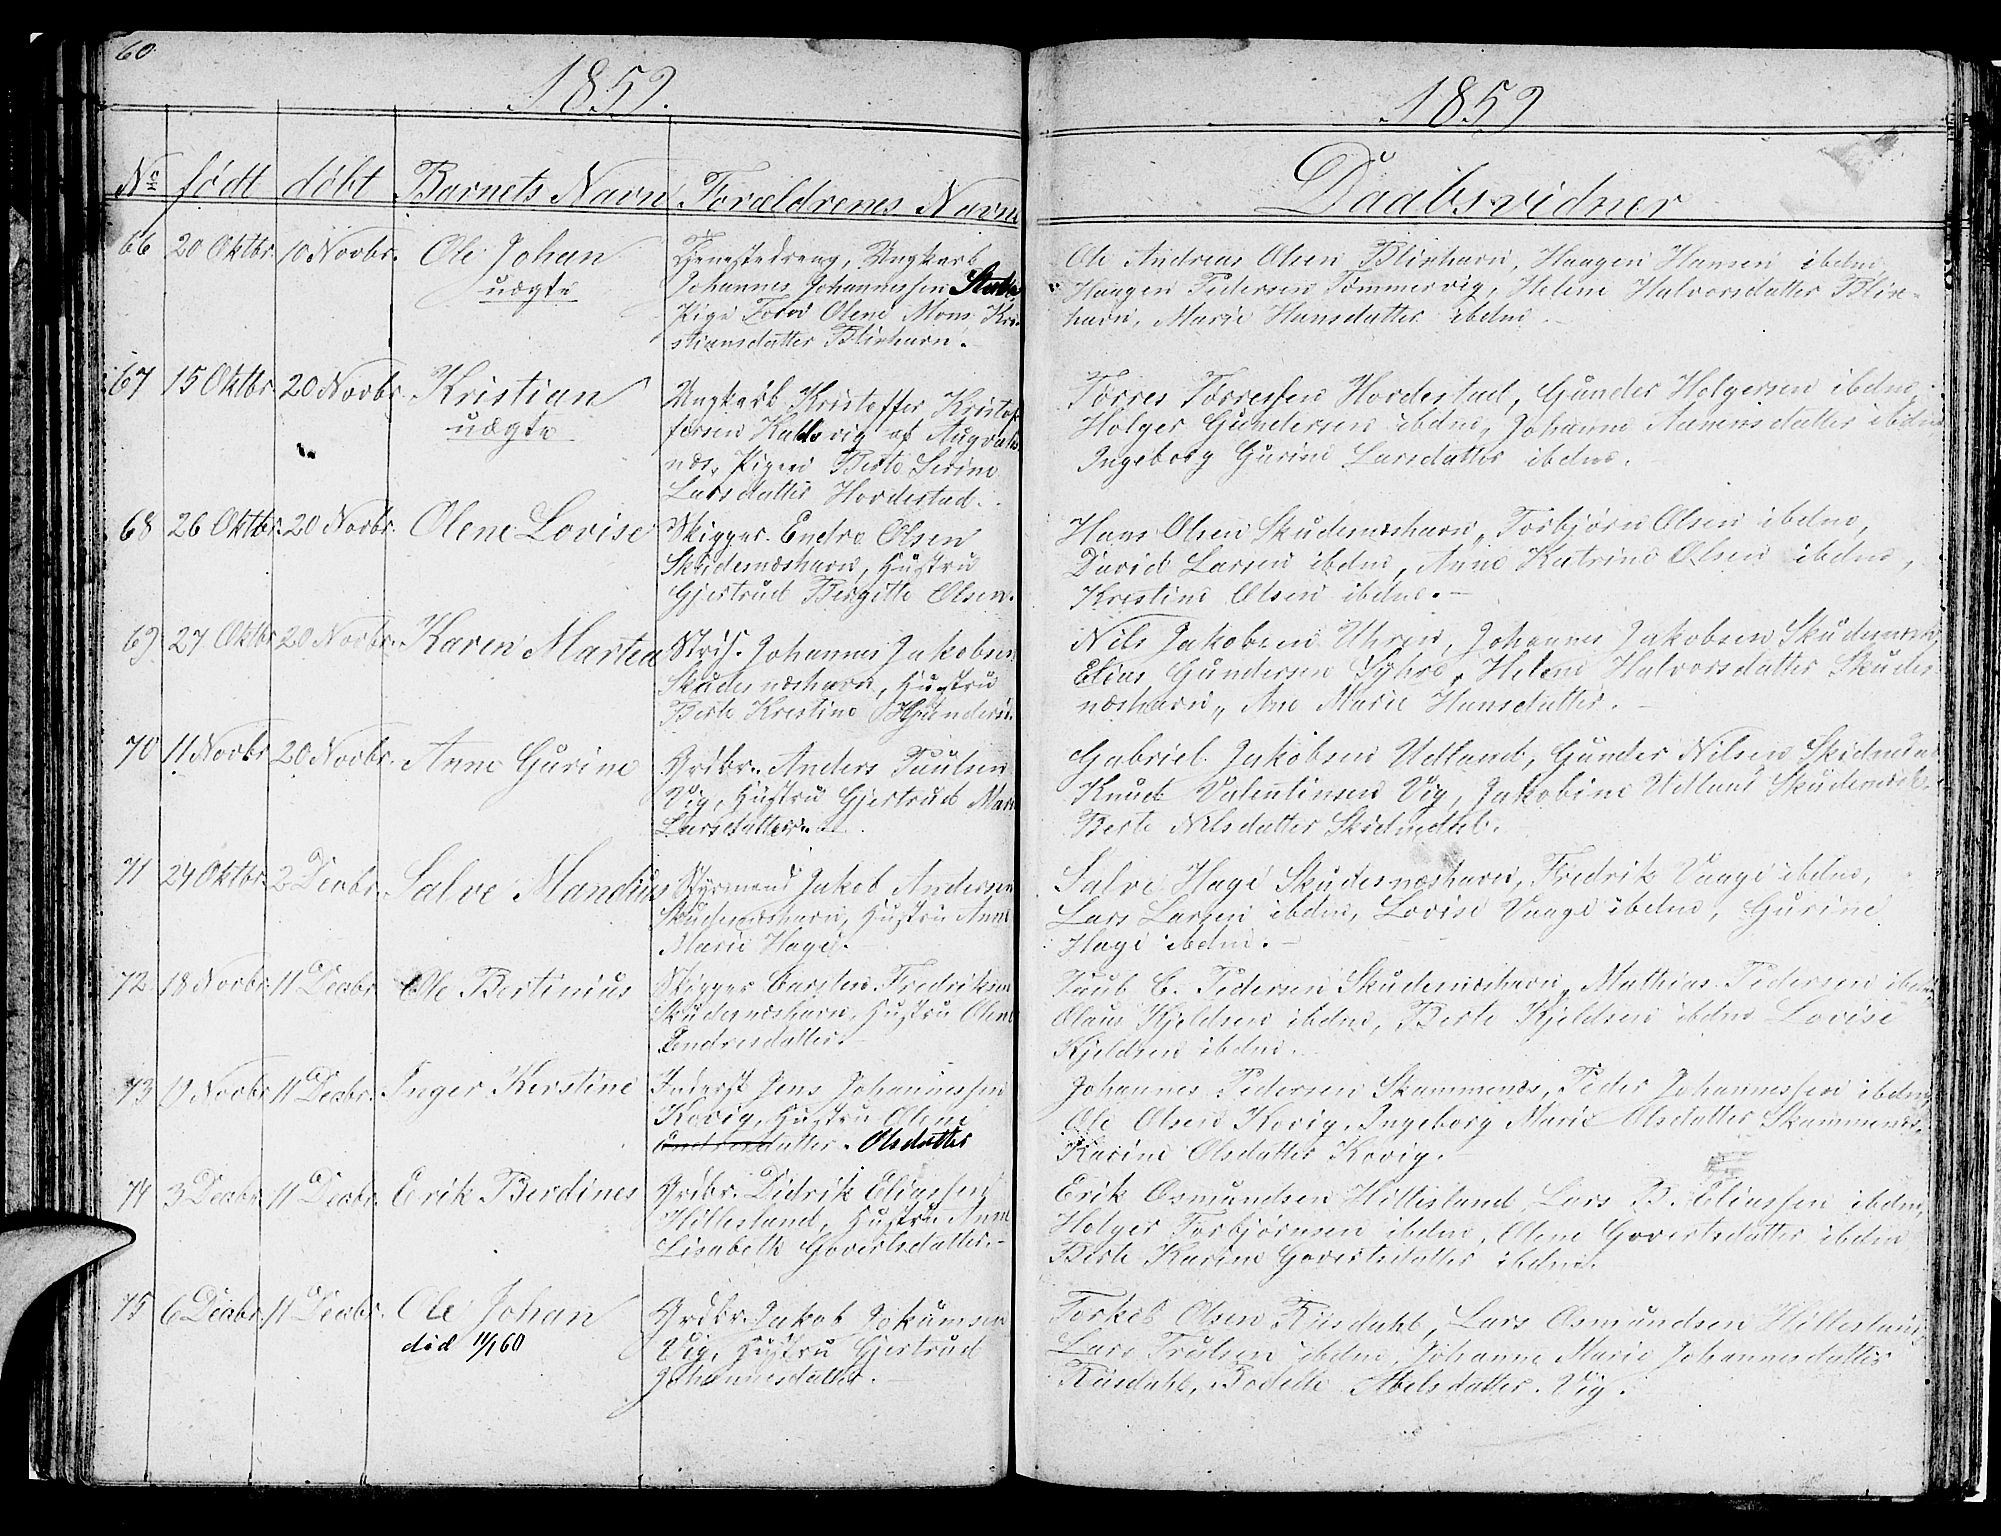 60.
1859.
No født døbt Barnets Navn Forældrenes Navne
66 20 Oktbr. 10 Novbr. Ole Johan
uægte
Tjenestedreng, Ungkarl
Johannes Johannessen
Pige Olene Mons Kri-
stiansdatter Blixhavn.
67 15 Oktbr. 20 Novbr. Kristian
uægte
Ungkarl Kristoffer Kristof-
fersen af Augvalds-
næs, Pigen Berte Serine
Larsdatter Hordestad.
68 26 Oktbr. 20 Novbr. Olene Lovise
Skipper Endre Olsen
Skudesnæshavn, Hustru
Gjertrud Bergitte Olsen.
69 27 Oktbr 20 Novbr. Karen Martea
Johannes Jakobsen
Skudesnæshavn, Hustru
Berte Krestine
70 11 Novbr 20 Novbr. Anne Gurine
Grdbr. Anders Paulsen
Vig, Hustru Gjertrud
Larsdatter.
71 24 Oktbr. 2 Decbr. Salve Mandius
Styrmand Jakob Andersen
Skudesnæshavn, Hustru Anne
Marie Hage.
72 18 Novbr. 11 Decbr. Ole Bertinius
Skipper Carsten Fredriksen
Skudesnæshavn, Hustru Olene
Endresdatter.
73 Novbr 11 Decbr. Inger Kerstine
Inderst Jens Johannessen
Kovig, Hustru Olene
Olsdatter
74 3 Decbr. 11 Decbr. Erik Berdines
Grdbr. Didrik Eliassen
Hillesland, Hustru Anne
Lisabeth Govertsdatter.
75 6 Decbr. 11 Decbr. Ole Johan
død 11/1 60
Grdbr. Jakob Jokumsen
Vig, Hustru Gjertrud
Johannesdatter.
1859
Daabsvidner
Ole Andreas Olsen Blixhavn, Haagen Hansen ibdm,
Haagen Pedersen Tømmervig, Helene Halvorsdatter Blix-
havn, Marie Hansdatter ibdm.
Tørres Tørressen Hordestad, Gunder Holgersen ibdm,
Holger Gundersen ibdm, Johanne ibdm
Ingeborg Gurine Larsdatter ibdm.
Hans Olsen Skudesnæshavn, Torbjørn Olsen ibdm,
David Larsen ibdm, Anne Katrine Olsen ibdm,
Krestine Olsen ibdm.
Nils Jakobsen Uhren, Johannes Jakobsen Skudesnæs,
Elias Gundersen Syhre, Helene Halvorsdatter Skudes-
næshavn, Ane Marie Hansdatter.
Gabriel Jakobsen Udland, Gunder Nilsen
Knud Valentinsen Vig, Jakobine Udland
Berte Nilsdatter
Salve Hage Skudesnæshavn, Fredrik Vaage ibdm,
Lars Larsen ibdm, Lovise Vaage ibdm, Gurine
Hage ibdm.
C. Pedersen Skudesnæshavn, Mathias Pedersen ibdm,
Olaus Kjeldsen ibdm, Berte Kjeldsen ibdm Lovise
Kjeldsen ibdm.
Johannes Pedersen Skammenes, Peder Johannessen ibdm,
Ole Olsen Kovig, Ingeborg Marie Olsdatter Skammenes,
Karine Olsdatter Kovig.
Erik Osmundsen Hillesland, Lars B. Eliassen ibdm,
Holger Torbjørnsen ibdm, Olene Govertsdatter ibdm
Berte Karine Govertsdatter ibdm.
Torkel Olsen Risdahl, Lars Osmundsen Hillesland,
Lars Trulsen ibdm, Johanne Marie Johannesdatter
Risdahl, Bodelle Abelsdatter Vig.